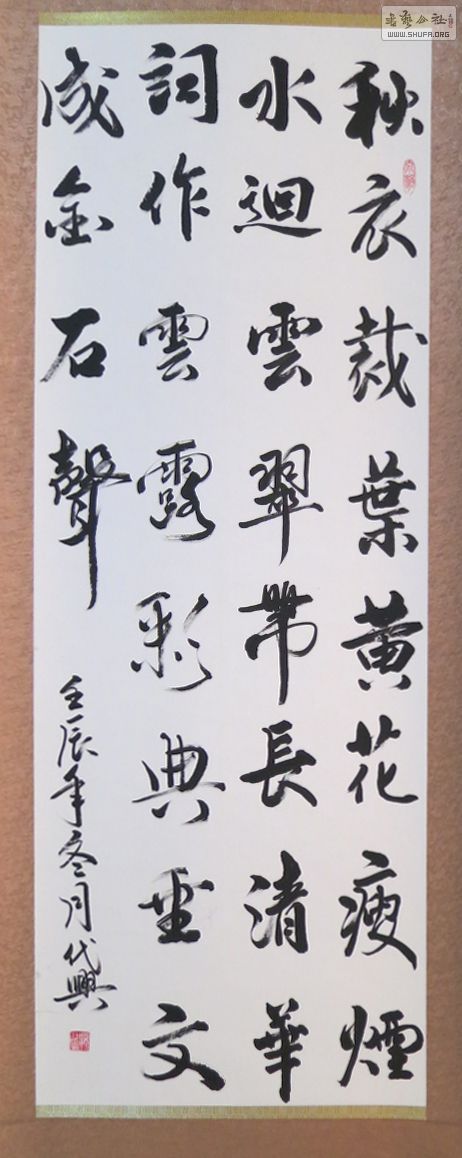 書藝公社
WWW.SHUFA.ORG
秋衣裁葉黄花瘦煙
水迴雲翠帶長清華
詞作雲露彩典重文
成金石聲
壬辰年冬月代興